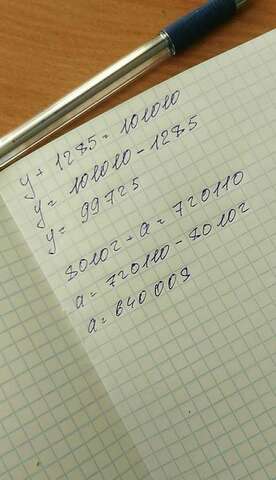 y + 1285 = 101010
y = 101010 - 1285
y = 99725
80102 + a = 720110
a = 720110 - 80102
a = 640008